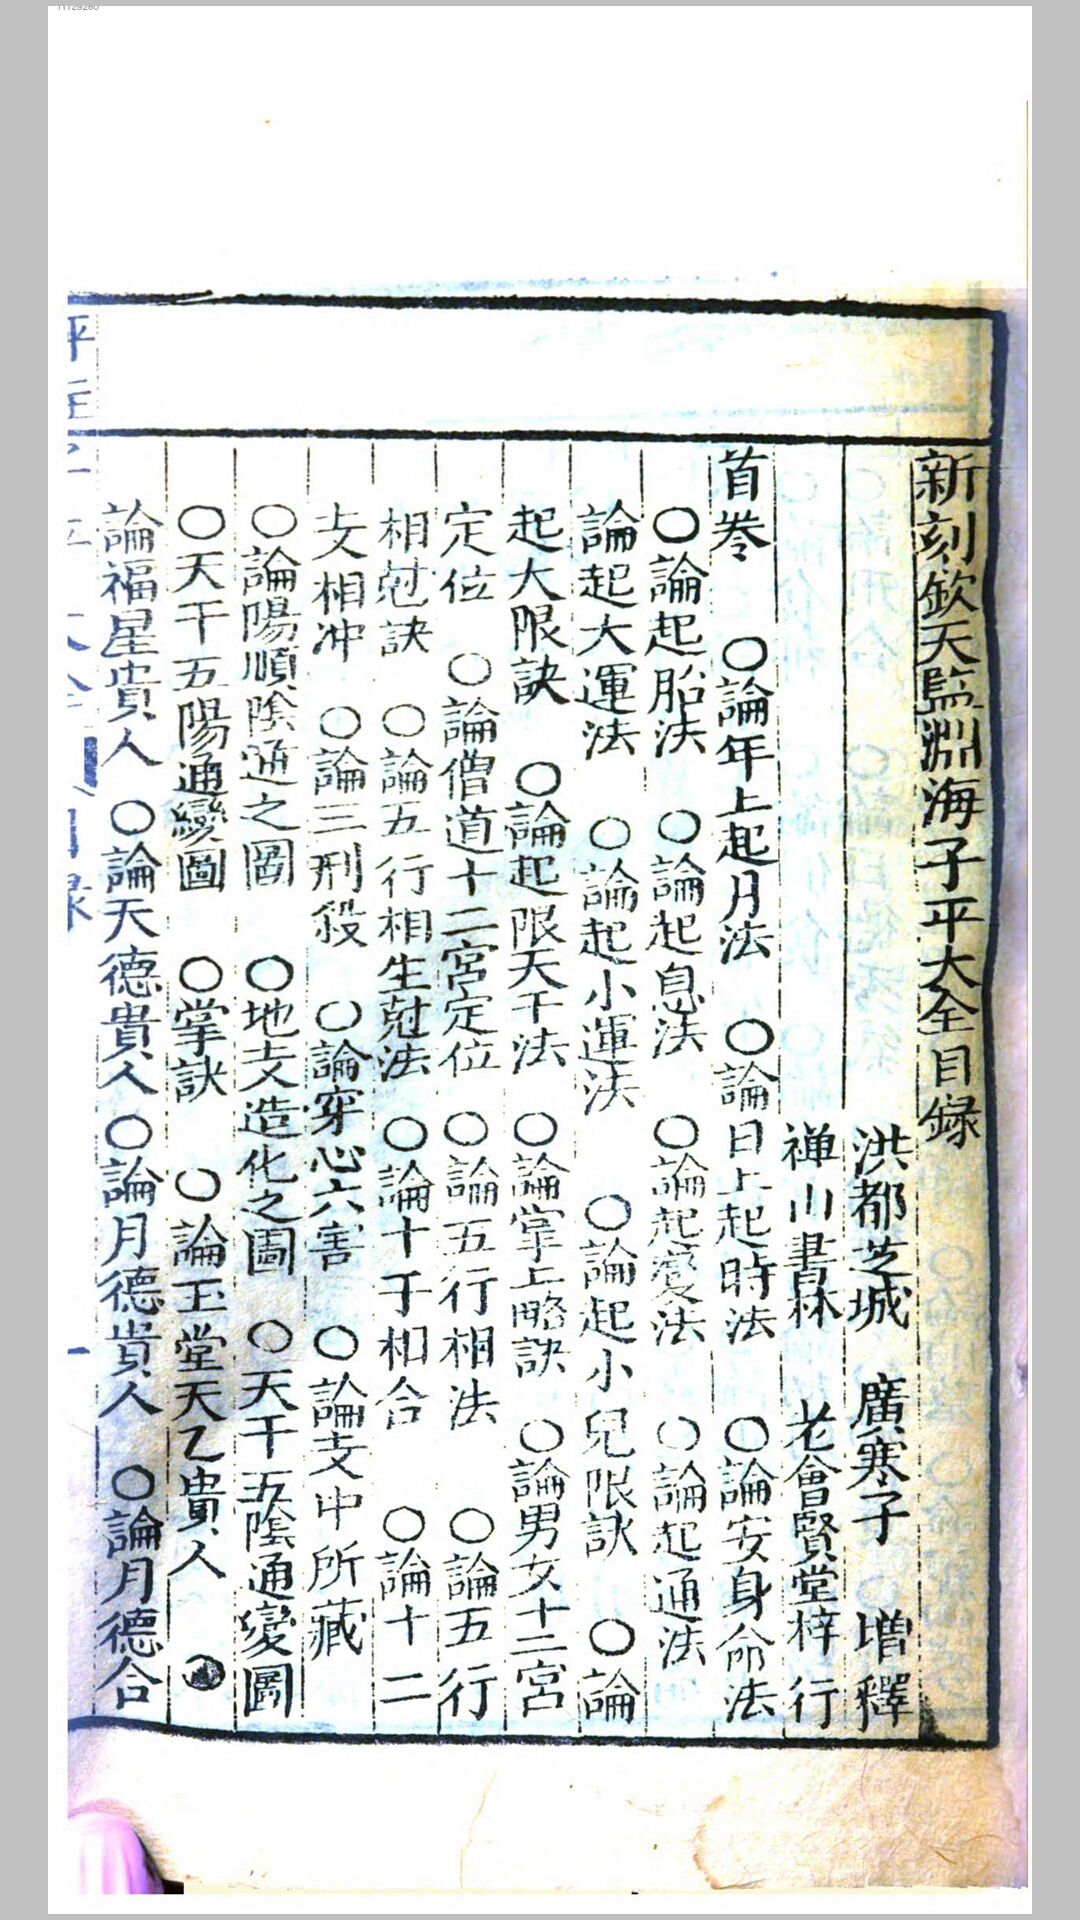 新刻欽天監淵海子平大全目録
洪都芝城 廣寒子 增釋
禅山書林 老會賢堂梓行
首巻 ○論年上起月法 ○論日上起時法 ○論安身命法
○論起胎法 ○論起息法 ○論起變法 ○論起通法
論起大運法 ○論起小運法 ○論起小兒限訣 ○論
起大限訣 ○論起限天干法 ○論掌上略訣 ○論男女十二宮
定位 ○論僧道十二宮定位 ○論五行相法 ○論五行
相尅訣 ○論五行相生尅法 ○論十干相合 ○論十二
支相冲 ○論三刑殺 ○論穿心六害 ○論支中所藏
○論陽順陰逆之圖 ○地支造化之圖 ○天干五陰通變圖
○天干五陽通變圖 ○掌訣 ○論玉堂天乙貴人
論福星貴人 ○論天德貴人 ○論月德貴人 ○論月德合